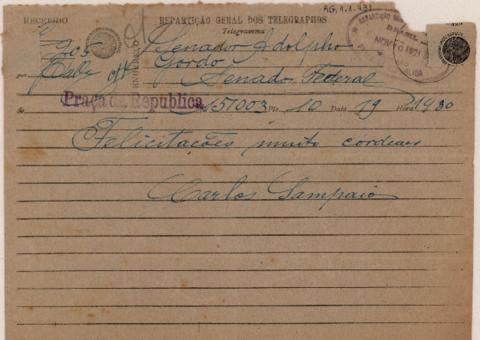 AG.1.1.431
RECEBIDO
REPARTIÇÃO GERAL DOS TELEGRAPHOS
Telegramma
Senador Adolpho
Gordo
Senado Federal
Praça da Republica
Nº 51003 Pls. 10 Data 19 Hora 1930
Felicitações muito cordeaes
Carlos Sampaio